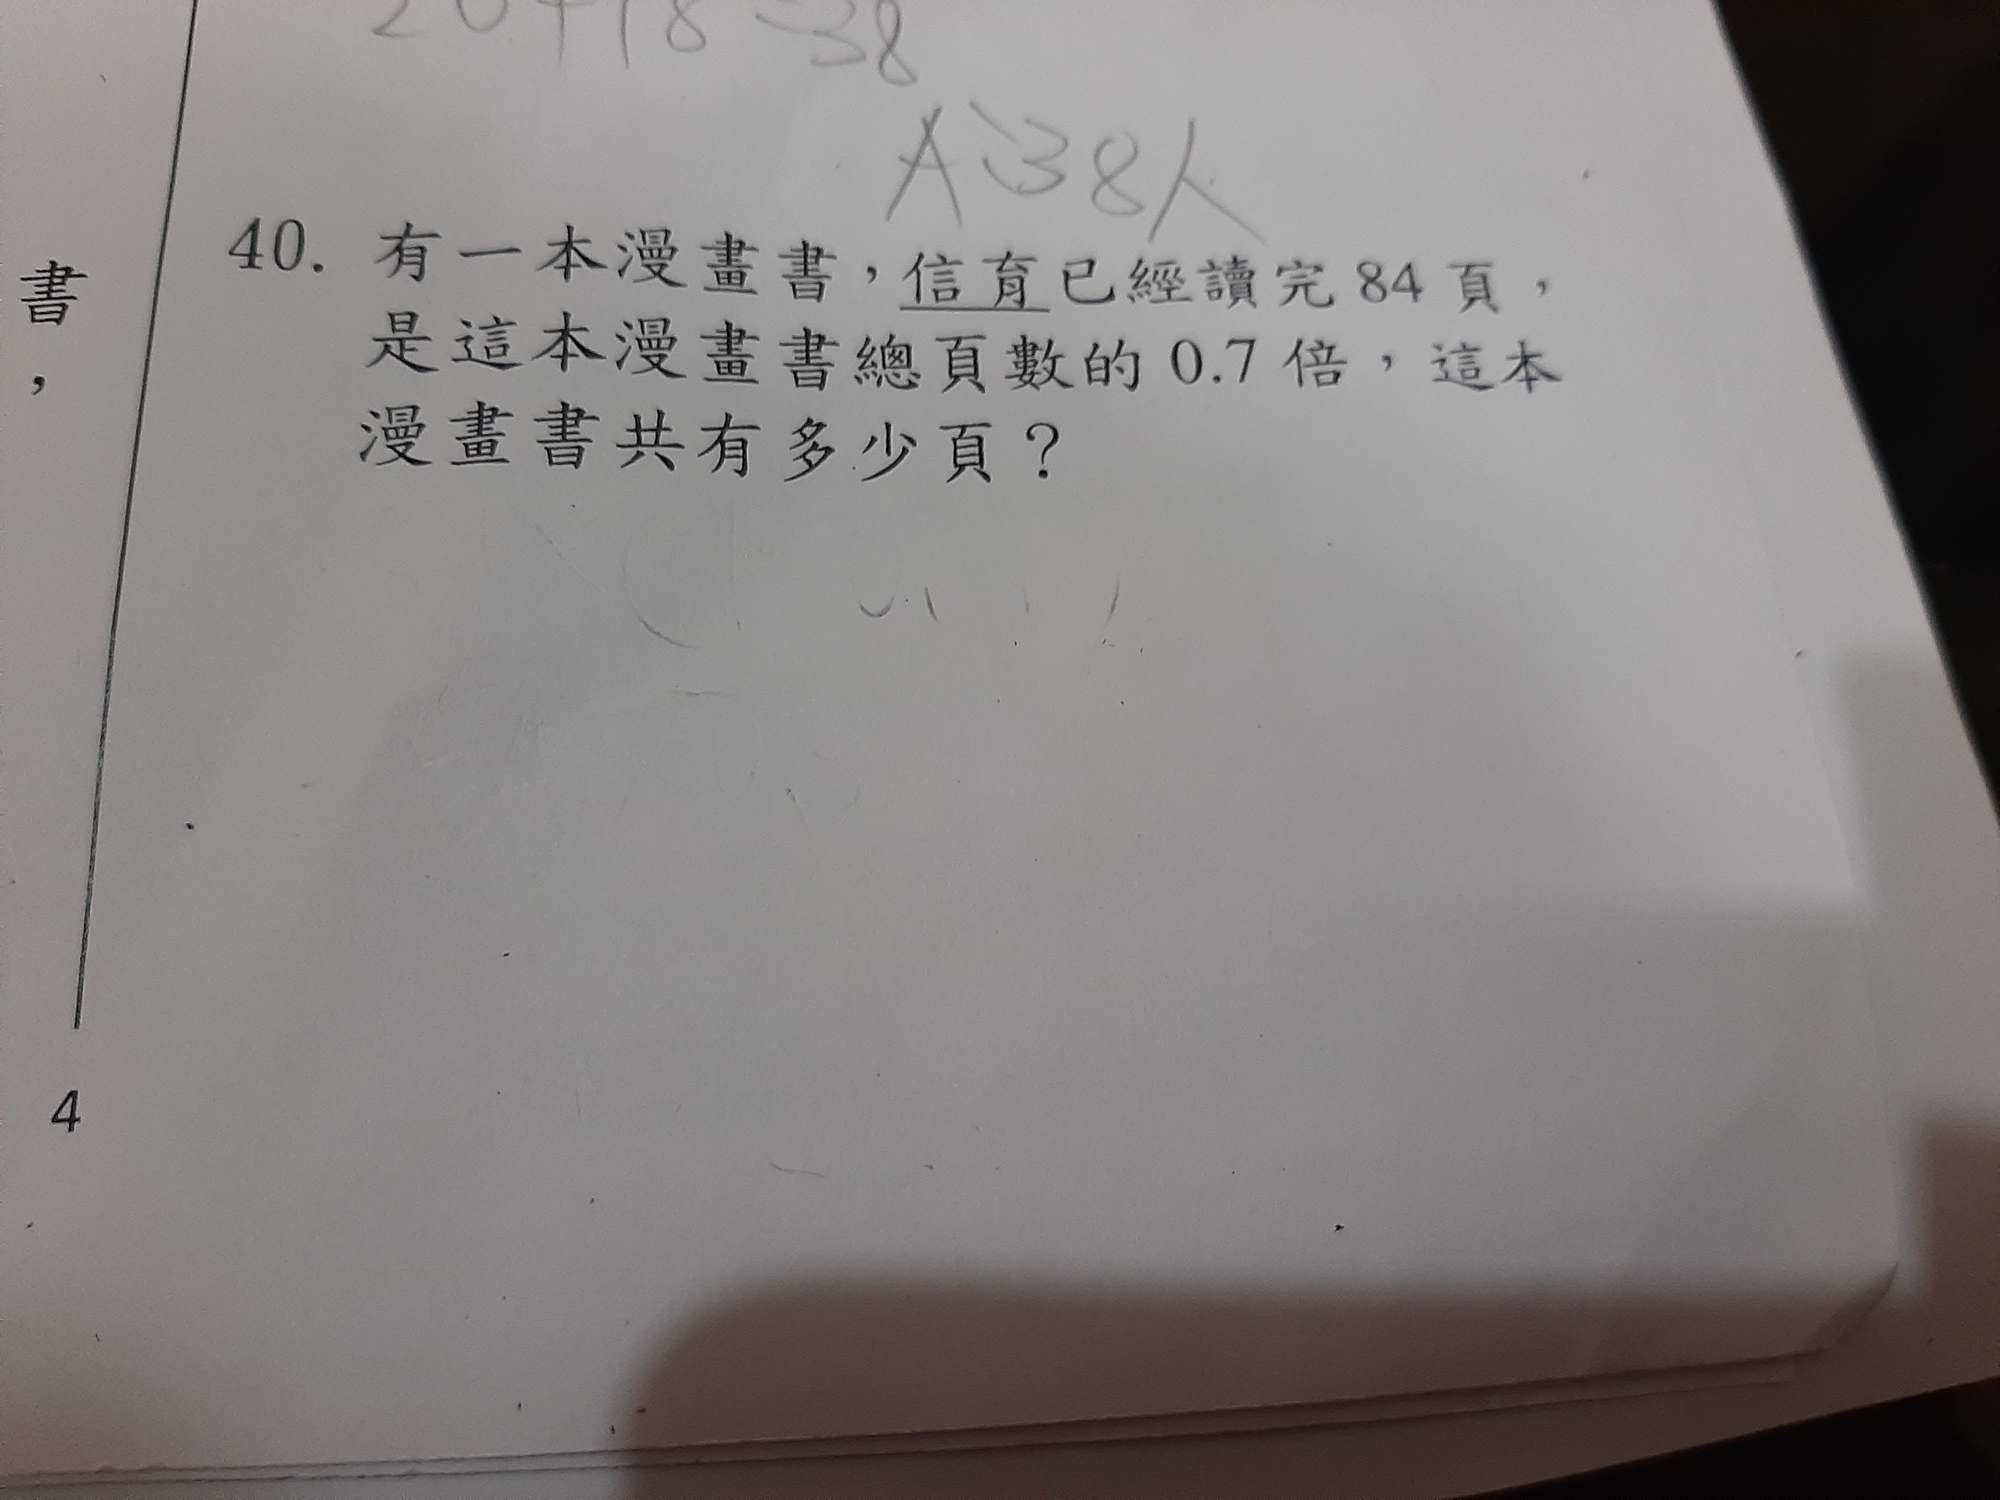 20+18=38
A:38人
40. 有一本漫畫書，信育已經讀完84頁，
是這本漫畫書總頁數的0.7倍，這本
漫畫書共有多少頁？
書
，
4